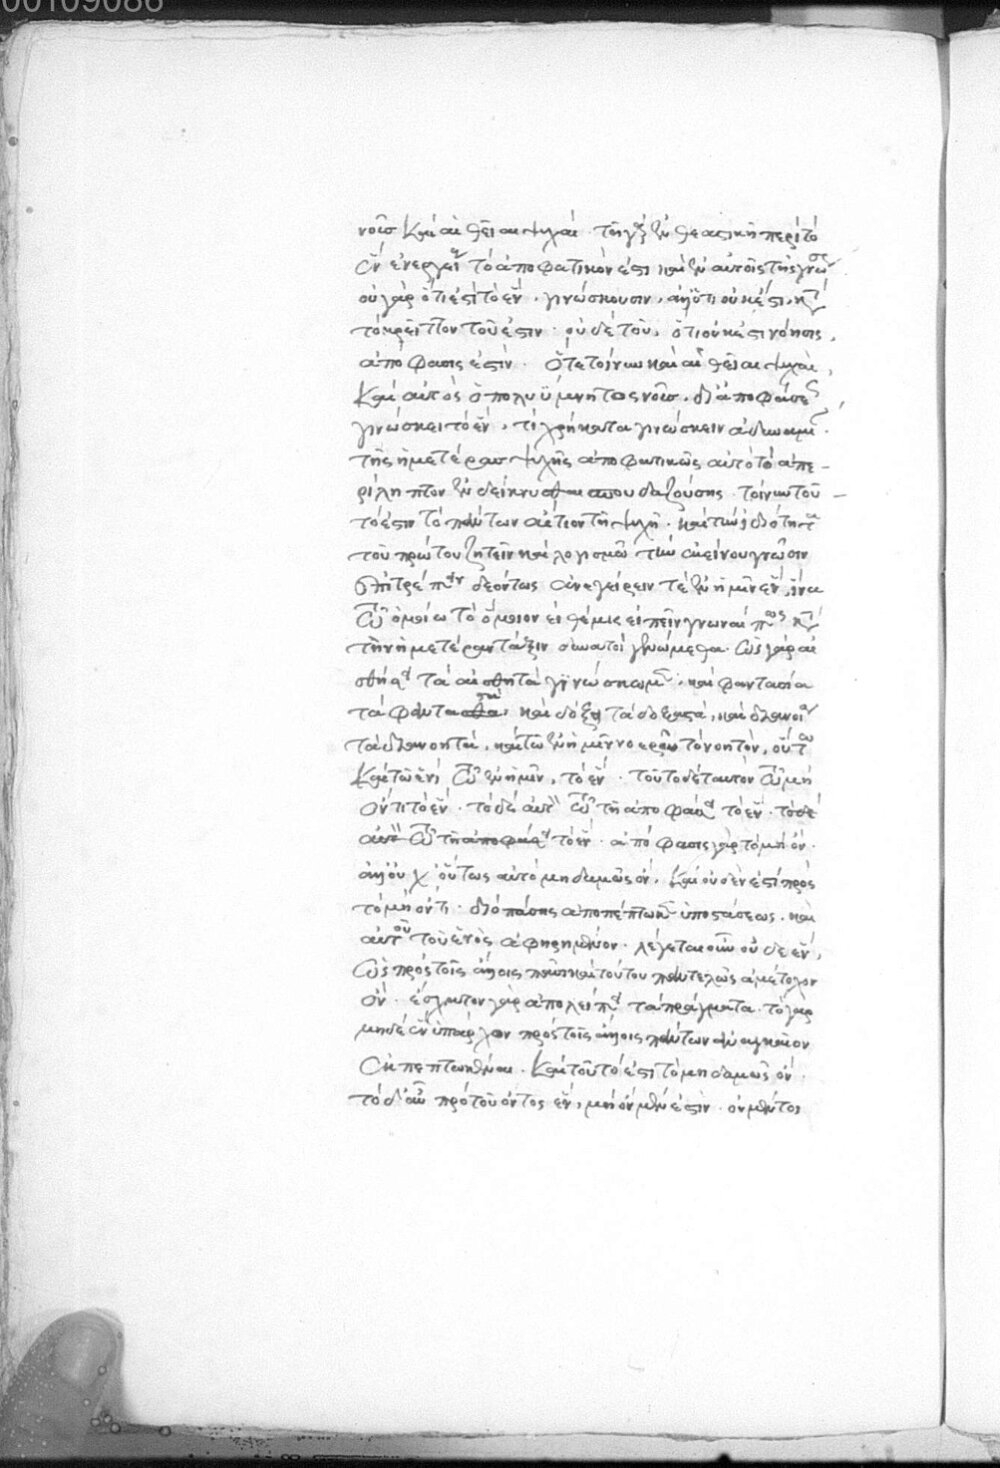 00109086
νοῖς καὶ αἱ θεῖαι ψυχαί. τῆ γὰρ ἐνθεαστικῆ περὶ τὸ
ἓν ἐνεργείᾳ τὸ ἀποφατικόν ἐστι καὶ ἐν αὐτοῖς τῆς γνώσεως
οὐ γὰρ ὅτι ἐστὶ τὸ ἓν, γινώσκουσιν, ἀλλ' ὅτι οὐκ ἔστι, κατὰ
τὸ κρεῖττον τοῦ ἔστιν. ἡ δὲ τοῦ, ὅτι οὐκ ἔστι νόησις,
ἀπόφασις ἐστίν. ὅτε τοίνυν καὶ αἱ θεῖαι ψυχαὶ,
καὶ αὐτὸς ὁ πολυύμνητος νοῦς, δι' ἀποφάσεως
γινώσκει τὸ ἓν, τί χρὴ καταγινώσκειν ἀδυναμίαν
τῆς ἡμετέρας ψυχῆς ἀποφατικῶς αὐτὸ τὸ ἀπε-
ρίληπτον ἐνδείκνυσθαι σπουδαζούσης. τοίνυν τοῦ
τό ἐστιν τὸ πάντων αἴτιον τῆ ψυχῆ. καὶ τὴν ἰδιότητα
τοῦ πρώτου ζητεῖν καὶ λογισμῶ τὴν ἐκείνου γνῶσιν
ἐπιτρέπειν δεόντως ἀνεγείρειν τὲ ἐν ἡμῖν ἓν, ἵνα
τῶ ὁμοίω τὸ ὅμοιον εἰ θέμις εἰπεῖν γνῶναί πως κατὰ
τὴν ἡμετέραν τάξιν δυνατοὶ γενώμεθα. ὡς γὰρ αἰ
σθήσει τὰ αἰσθητὰ γινώσκωμεν, καὶ φαντασία
τὰ φανταστὰ, καὶ δόξη τὰ δοξαστὰ, καὶ διανοίᾳ
τὰ διανοητὰ, καὶ τῶ ἐν ἡμῖν νοερῶ τὸ νοητὸν, οὕτω
καὶ τῶ ἑνὶ τῶ ἐν ἡμῖν, τὸ ἕν. τοῦτο δὲ ταυτὸν τῶ μὴ
ὄντι τὸ ἕν. τὸ δὲ αὐτὸ τῶ τῆ ἀποφάσει τὸ ἕν. τὸ δὲ
αὐτὸ τῶ τῆ ἀποφάσει τὸ ἕν. ἀπόφασις γὰρ τὸ μὴ ὄν.
ἀλλ' οὐχ οὕτως αὐτὸ μηδαμῶς ὄν. καὶ οὐδέν ἐστι πρὸς
τὸ μὴ ὄντι. διὸ πάσης ἀποπέπτωκεν ὑποστάσεως. καὶ
αὐτοῦ τοῦ ἑνὸς ἀφηρημένον. λέγεται οὖν οὐδὲ ἕν,
ὡς πρὸς τοῖς ἄλλοις πᾶσι καὶ τούτου παντελῶς ἀμέτοχον
ὄν. ἔσχατον γὰρ ἀπολείπει τὰ πράγματα. τὸ γὰρ
μηδὲ ἓν ὑπάρχον πρὸς τοῖς ἄλλοις πάντων ἀναγκαῖον
ἐκπεπτωκέναι. καὶ τοῦτό ἐστι τὸ μηδαμῶς ὄν.
τὸ δ' αὖ πρὸ τοῦ ὄντος ἓν, μὴ ὂν μέν ἐστιν. οὐ μέντοι